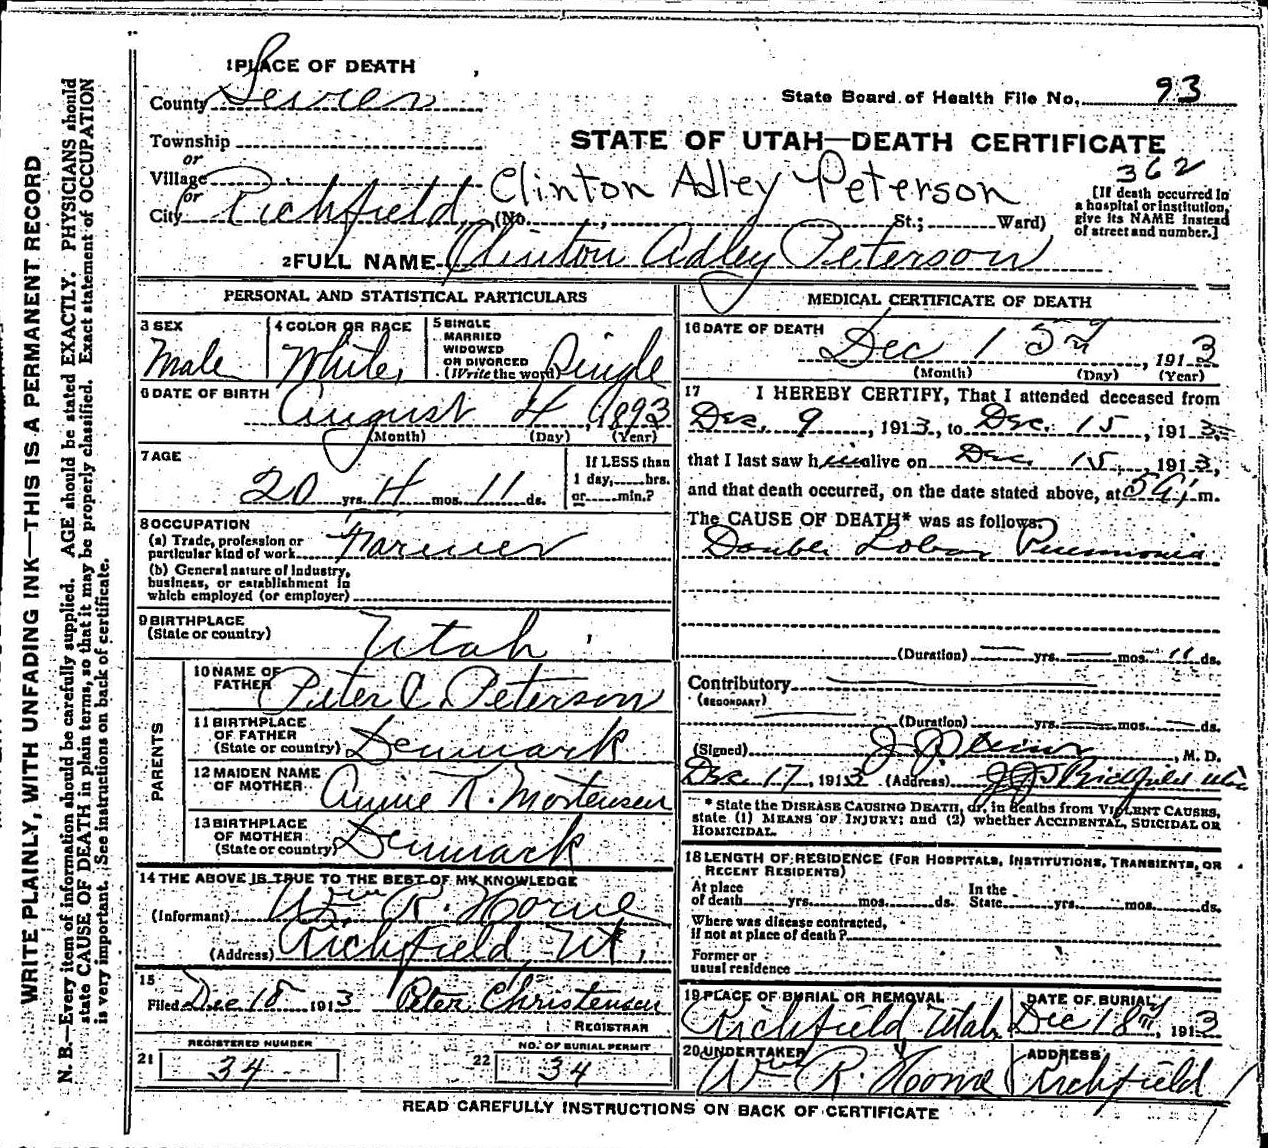 1 PLACE OF DEATH
County Sevier
State Board of Health File No. 93
Township
or
STATE OF UTAH—DEATH CERTIFICATE
362
Village
or
Clinton Adley Peterson
City Richfield (No. St.; Ward)
[If death occurred in
a hospital or institution,
give its NAME instead
of street and number.]
2 FULL NAME Clinton Adley Peterson
PERSONAL AND STATISTICAL PARTICULARS
3 SEX
Male
4 COLOR OR RACE
White
5 SINGLE
MARRIED
WIDOWED
OR DIVORCED
(Write the word)
Single
6 DATE OF BIRTH
August 4, 1893
(Month) (Day) (Year)
7 AGE
20 yrs. 4 mos. 11 ds.
If LESS than
1 day, hrs.
or min.?
8 OCCUPATION
(a) Trade, profession or
particular kind of work Farmer
(b) General nature of industry,
business, or establishment in
which employed (or employer)
9 BIRTHPLACE
(State or country)
Utah
PARENTS
10 NAME OF
FATHER
Peter C Peterson
11 BIRTHPLACE
OF FATHER
(State or country)
Denmark
12 MAIDEN NAME
OF MOTHER
Annie K. Mortensen
13 BIRTHPLACE
OF MOTHER
(State or country)
Denmark
14 THE ABOVE IS TRUE TO THE BEST OF MY KNOWLEDGE
(Informant) Wm R. Horne
(Address) Richfield, Ut.
15
Filed Dec 18 1913 Peter Christensen
REGISTRAR
REGISTERED NUMBER
21 34
NO. OF BURIAL PERMIT
22 34
MEDICAL CERTIFICATE OF DEATH
16 DATE OF DEATH
Dec 15, 1913
(Month) (Day) (Year)
17 I HEREBY CERTIFY, That I attended deceased from
Dec. 9, 1913, to Dec. 15, 1913
that I last saw him alive on Dec. 15, 1913,
and that death occurred, on the date stated above, at m.
The CAUSE OF DEATH* was as follows:
Double Lobar Pneumonia
(Duration) yrs. mos. 11 ds.
Contributory
(SECONDARY)
(Duration) yrs. mos. ds.
(Signed) M. D.
Dec. 17, 1913 (Address) Richfield Utah
* State the DISEASE CAUSING DEATH, or, in deaths from VIOLENT CAUSES,
state (1) MEANS OF INJURY; and (2) whether ACCIDENTAL, SUICIDAL OR
HOMICIDAL.
18 LENGTH OF RESIDENCE (FOR HOSPITALS, INSTITUTIONS, TRANSIENTS, OR
RECENT RESIDENTS)
At place
of death yrs. mos. ds.
In the
State yrs. mos. ds.
Where was disease contracted,
if not at place of death?
Former or
usual residence
19 PLACE OF BURIAL OR REMOVAL
Richfield Utah
DATE OF BURIAL
Dec 18, 1913
20 UNDERTAKER
Wm R. Horne
ADDRESS
Richfield
READ CAREFULLY INSTRUCTIONS ON BACK OF CERTIFICATE
WRITE PLAINLY, WITH UNFADING INK—THIS IS A PERMANENT RECORD
N. B.—Every item of information should be carefully supplied. AGE should be stated EXACTLY. PHYSICIANS should
state CAUSE OF DEATH in plain terms, so that it may be properly classified. Exact statement of OCCUPATION
is very important. See instructions on back of certificate.